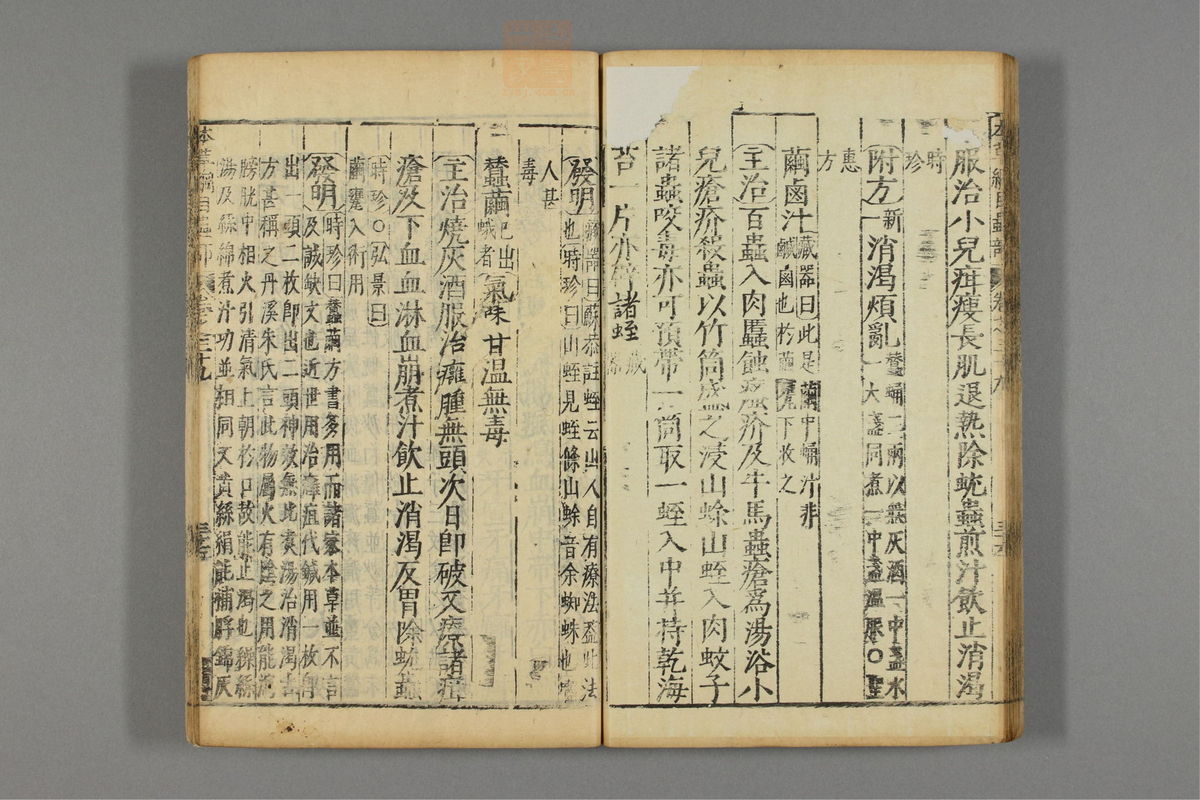 服治小兒疳瘦長肌退熱除蚘蟲煎汁飲止消渴
時
珍
附方新一消渴煩亂蠶蛹二兩以無灰酒一中盞水
一大盞同煮一中盞溫服○聖
惠
方
繭鹵汁藏器曰此是繭中蛹汁非
鹹鹵也於繭甕下收之
主治百蟲入肉䘌蝕瘙疥及牛馬蟲瘡爲湯浴小
兒瘡疥殺蟲以竹筒盛之浸山蜍山蛭入肉蚊子
諸蟲咬毒亦可預帶一筒取一蛭入中并持乾海
苔一片亦辟諸蛭藏
器
發明藏器曰蘇恭註蛭云山人自有療法盖此法
也時珍曰山蛭見蛭條山蜍音余蜘蛛也
人甚
毒
蠶繭已出
蛾者氣味甘温無毒
主治燒灰酒服治癰腫無頭次日卽破又療諸疳
瘡及下血血淋血崩煮汁飲止消渴反胃除蚘蟲
時珍○弘景曰
繭甕入術用
發明時珍曰蠶繭方書多用而諸家本草並不言
及誠缺文也近世用治癰疽代鍼用一枚卽
出一頭二枚卽出二頭神效無比煮湯治消渴古
方甚稱之丹溪朱氏言此物屬火有陰之用能瀉
膀胱中相火引清氣上朝於口故能止渴也繰絲
湯及絲綿煮汁功並相同又黃絲絹能補脬錦灰